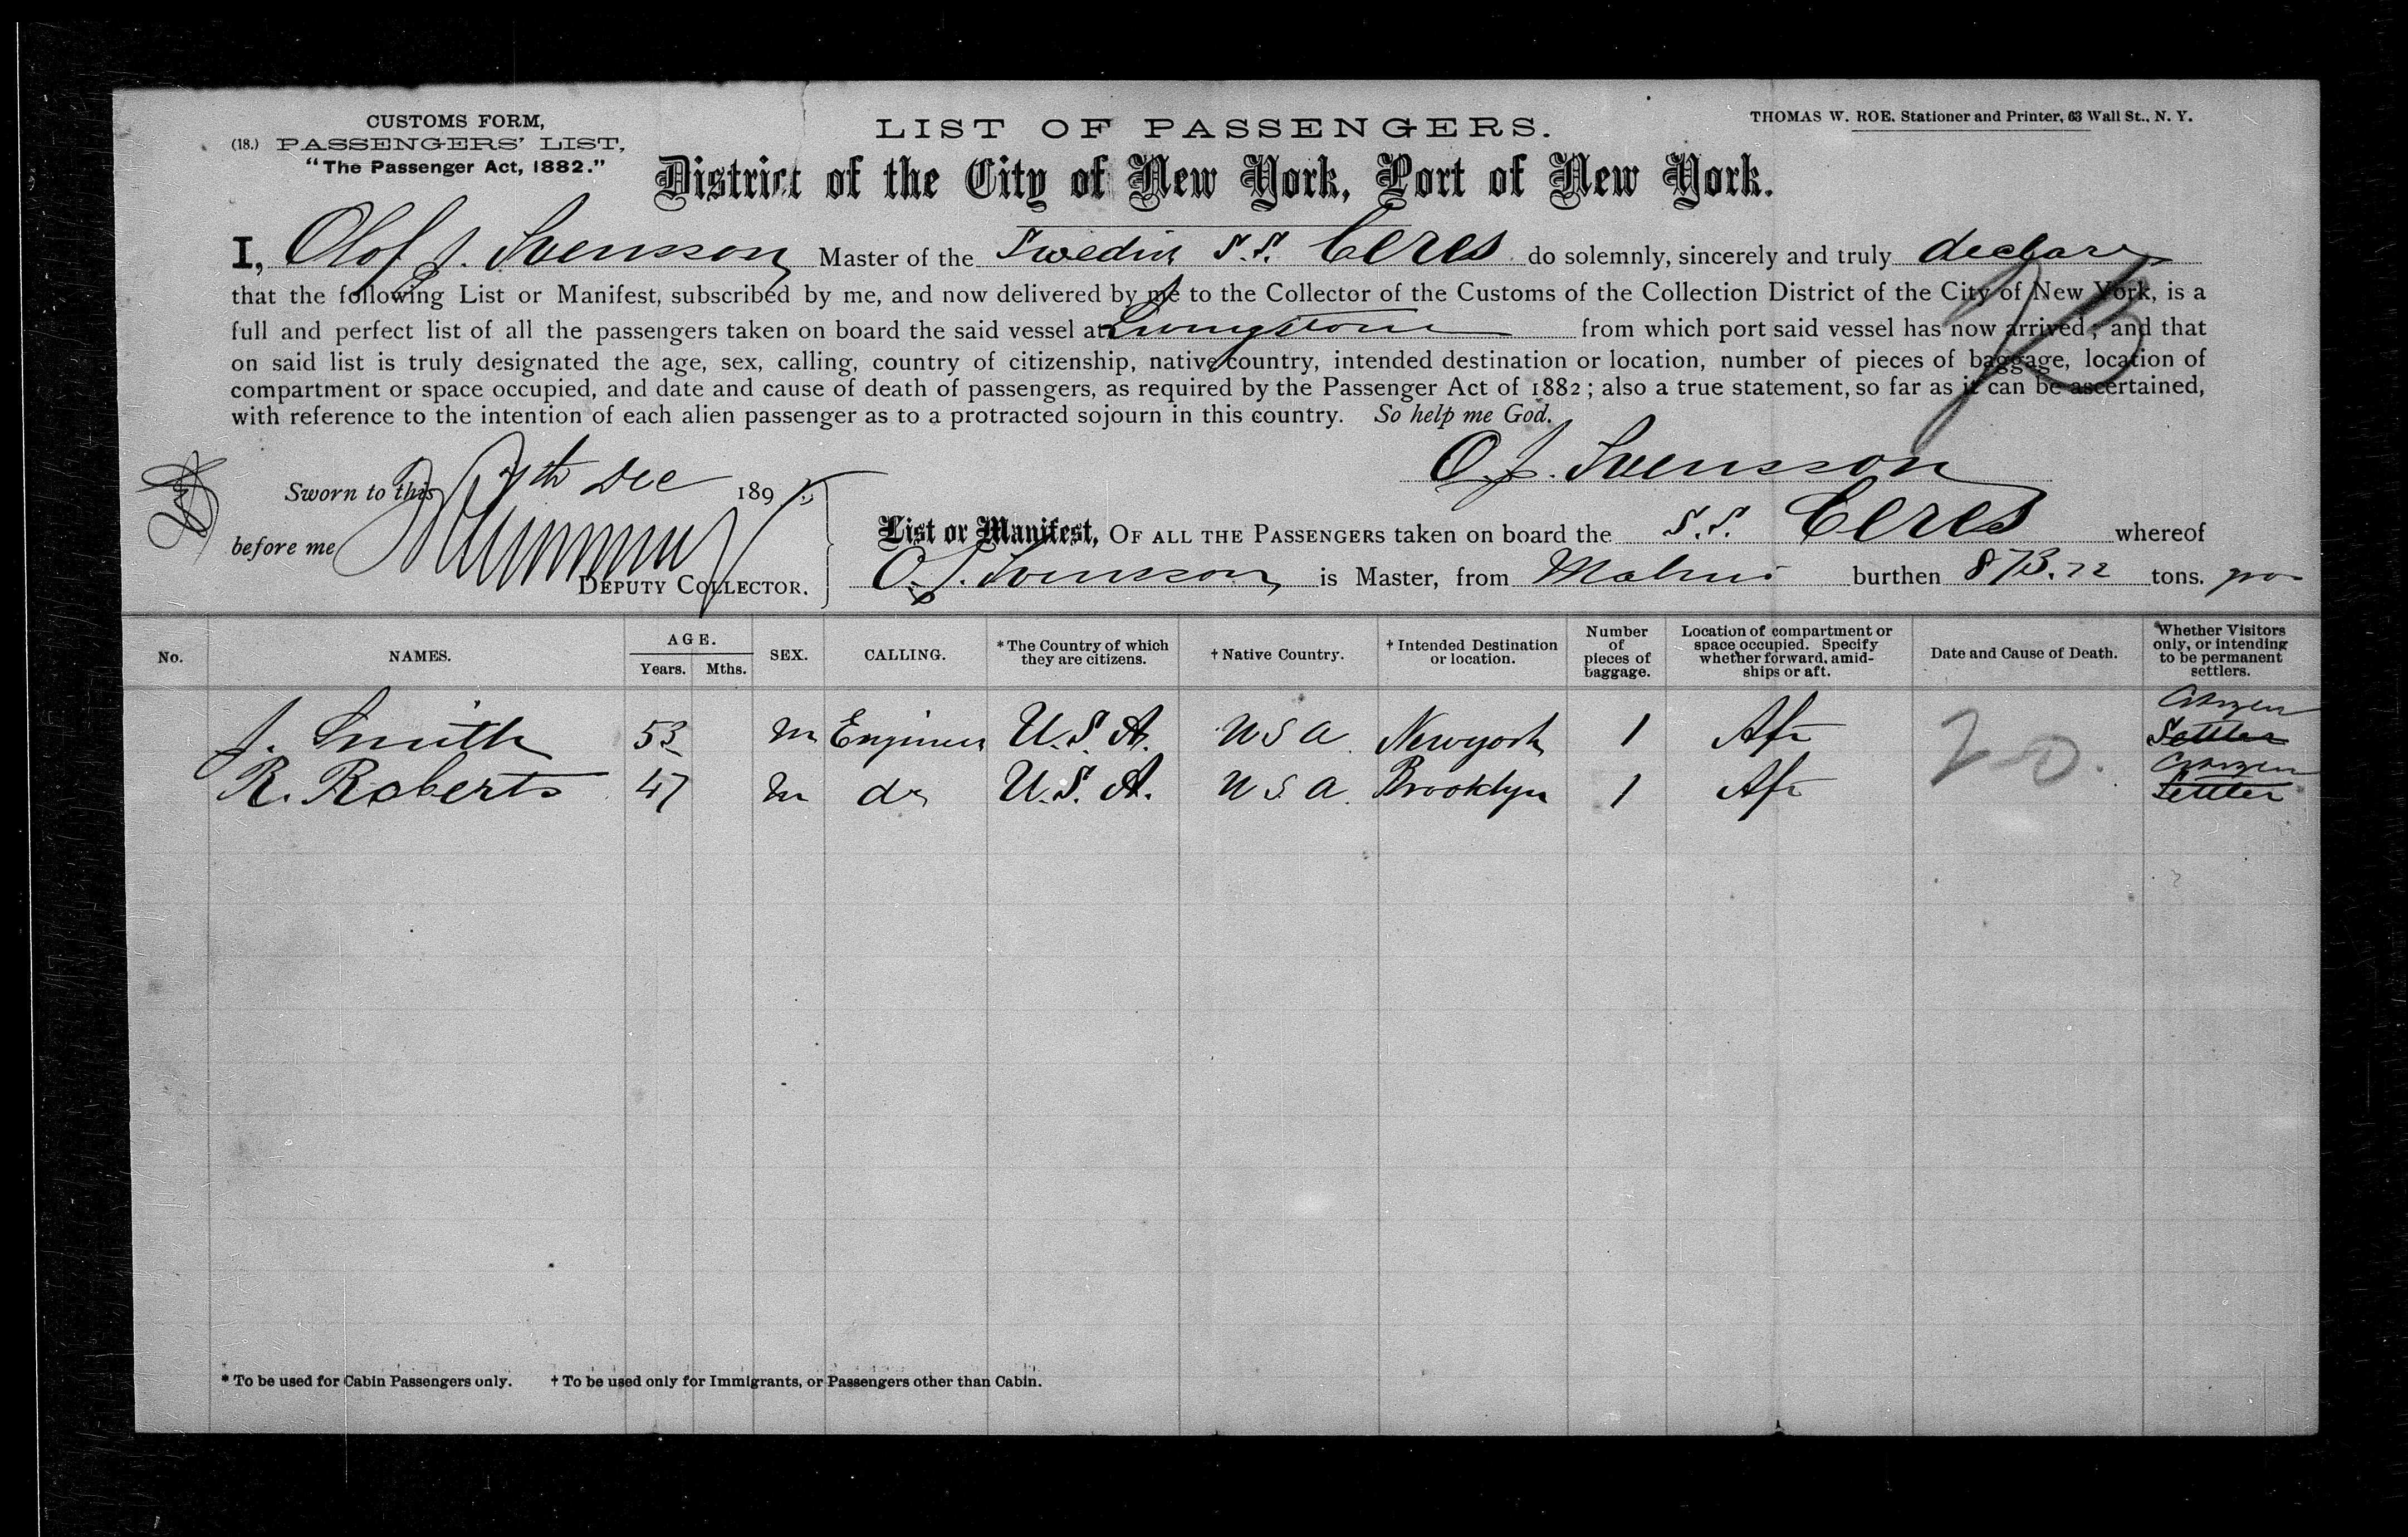 CUSTOMS FORM,
(18.) PASSENGERS' LIST,
"The Passenger Act, 1882."
LIST OF PASSENGERS.
THOMAS W. ROE. Stationer and Printer, 63 Wall St., N. Y.
District of the City of New York, Port of New York.
I, Olof J. Svensson Master of the Swedish S.S. Ceres do solemnly, sincerely and truly declare
that the following List or Manifest, subscribed by me, and now delivered by me to the Collector of the Customs of the Collection District of the City of New York, is a
full and perfect list of all the passengers taken on board the said vessel at Livingstone from which port said vessel has now arrived; and that
on said list is truly designated the age, sex, calling, country of citizenship, native country, intended destination or location, number of pieces of baggage, location of
compartment or space occupied, and date and cause of death of passengers, as required by the Passenger Act of 1882; also a true statement, so far as it can be ascertained,
with reference to the intention of each alien passenger as to a protracted sojourn in this country. So help me God.
O. J. Svensson
Sworn to this 7th Dec 189
before me
DEPUTY COLLECTOR.
List or Manifest, OF ALL THE PASSENGERS taken on board the S.S. Ceres whereof
O. J. Svensson is Master, from Malmö burthen 873.22 tons.
No. NAMES. AGE. Years. Mths. SEX. CALLING. *The Country of which they are citizens. †Native Country. †Intended Destination or location. Number of pieces of baggage. Location of compartment or space occupied. Specify whether forward, amidships or aft. Date and Cause of Death. Whether Visitors only, or intending to be permanent settlers.
Citizen
J. Smith 53 m Engineer U.S.A. U S A. Newyork 1 Aft Settler
Citizen
R. Roberts 47 m do U.S.A. U S A. Brooklyn 1 Aft Settler
20.
* To be used for Cabin Passengers only. † To be used only for Immigrants, or Passengers other than Cabin.